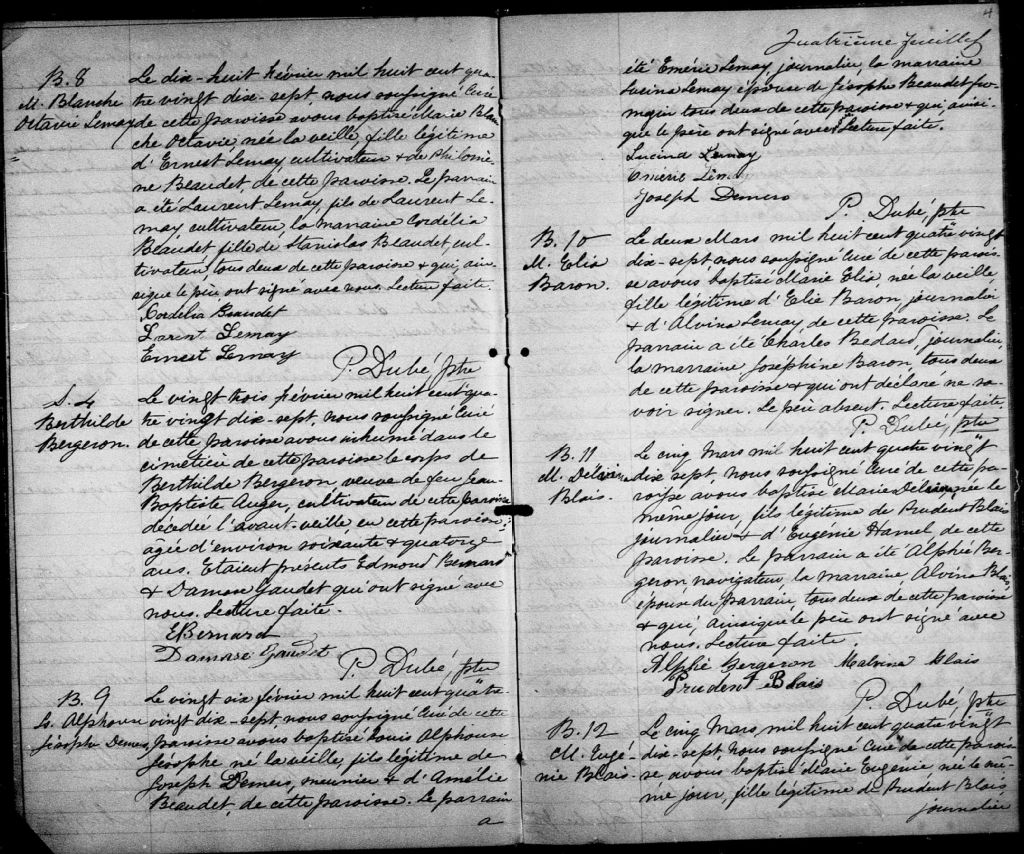 B. 8
M. Blanche
Octavie Lemay
Le dix-huit février mil huit cent qua-
tre vingt dix-sept, nous soussigné Curé
de cette paroisse avons baptisé Marie Blan
che Octavie, née la veille, fille légitime
d'Ernest Lemay cultivateur & de Philomè-
ne Beaudet, de cette paroisse. Le parrain
a été Laurent Lemay, fils de Laurent Le-
may, cultivateur, la marraine Cordélia
Beaudet fille de Stanislas Beaudet cul-
tivateur, tous deux de cette paroisse & qui, ain-
si que le père ont signé avec nous. Lecture faite.
Cordélia Beaudet
Larent Lemay
Ernest Lemay
P. Dubé, ptre
S. 4
Berthilde
Bergeron.
Le vingt trois février mil huit cent qua-
tre vingt dix-sept, nous soussigné Curé
de cette paroisse avons inhumé dans le
cimetière de cette paroisse le corps de
Berthilde Bergeron veuve de feu Jean-
Baptiste Auger, cultivateur de cette paroisse
décédée l'avant-veille en cette paroisse,
âgée d'environ soixante & quatorze
ans. Etaient présents Edmond Bernard
& Damase Gaudet qui ont signé avec
nous. Lecture faite.
E Bernard
Damase Gaudet
P. Dubé, ptre
B. 9
Ls. Alphonse
Joseph Demers
Le vingt six février mil huit cent quatre
vingt dix-sept nous soussigné Curé de cette
paroisse avons baptisé Louis Alphonse
Joseph né la veille, fils légitime de
Joseph Demers, meunier & d'Amélie
Beaudet, de cette paroisse. Le parrain
a
4
Quatrième feuillet
été Emérie Lemay, journalier, la marraine
Lucina Lemay épouse de Joseph Beaudet
tous deux de cette paroisse & qui, ainsi
que le père ont signé avec Lecture faite.
Lucina Lemay
Emérie Lemay
Joseph Demers
P. Dubé, ptre
B. 10
M. Elia
Baron.
Le deux Mars mil huit cent quatre vingt
dix-sept, nous soussigné Curé de cette parois-
se avons baptisé Marie Elia, née la veille
fille légitime d'Elie Baron, journalier
& d'Alvina Lemay, de cette paroisse. Le
parrain a été Charles Bedard, journalier,
la marraine Joséphine Baron, tous deux
de cette paroisse & qui ont déclaré ne sa-
voir signer. Le père absent. Lecture faite.
P. Dubé, ptre
B. 11
M.
Blais.
Le cinq Mars mil huit cent quatre vingt
dix sept, nous soussigné Curé de cette pa-
roisse avons baptisé Marie née le
même jour, fils légitime de Prudent Blais
journalier & d'Eugénie Hamel de cette
paroisse. Le parrain a été Alphé Ber-
geron, navigateur, la marraine, Alvina Blais,
épouse du parrain, tous deux de cette paroisse
& qui, ainsi que le père ont signé avec
nous. Lecture faite.
Alphé Bergeron Malvina Blais
Prudent Blais
P. Dubé, ptre
B. 12
M. Eugé-
nie Blais
Le cinq Mars, mil huit cent quatre vingt
dix-sept, nous soussigné Curé de cette parois-
se avons baptisé Marie Eugénie, née le mê-
me jour, fille légitime de Prudent Blais,
journalier